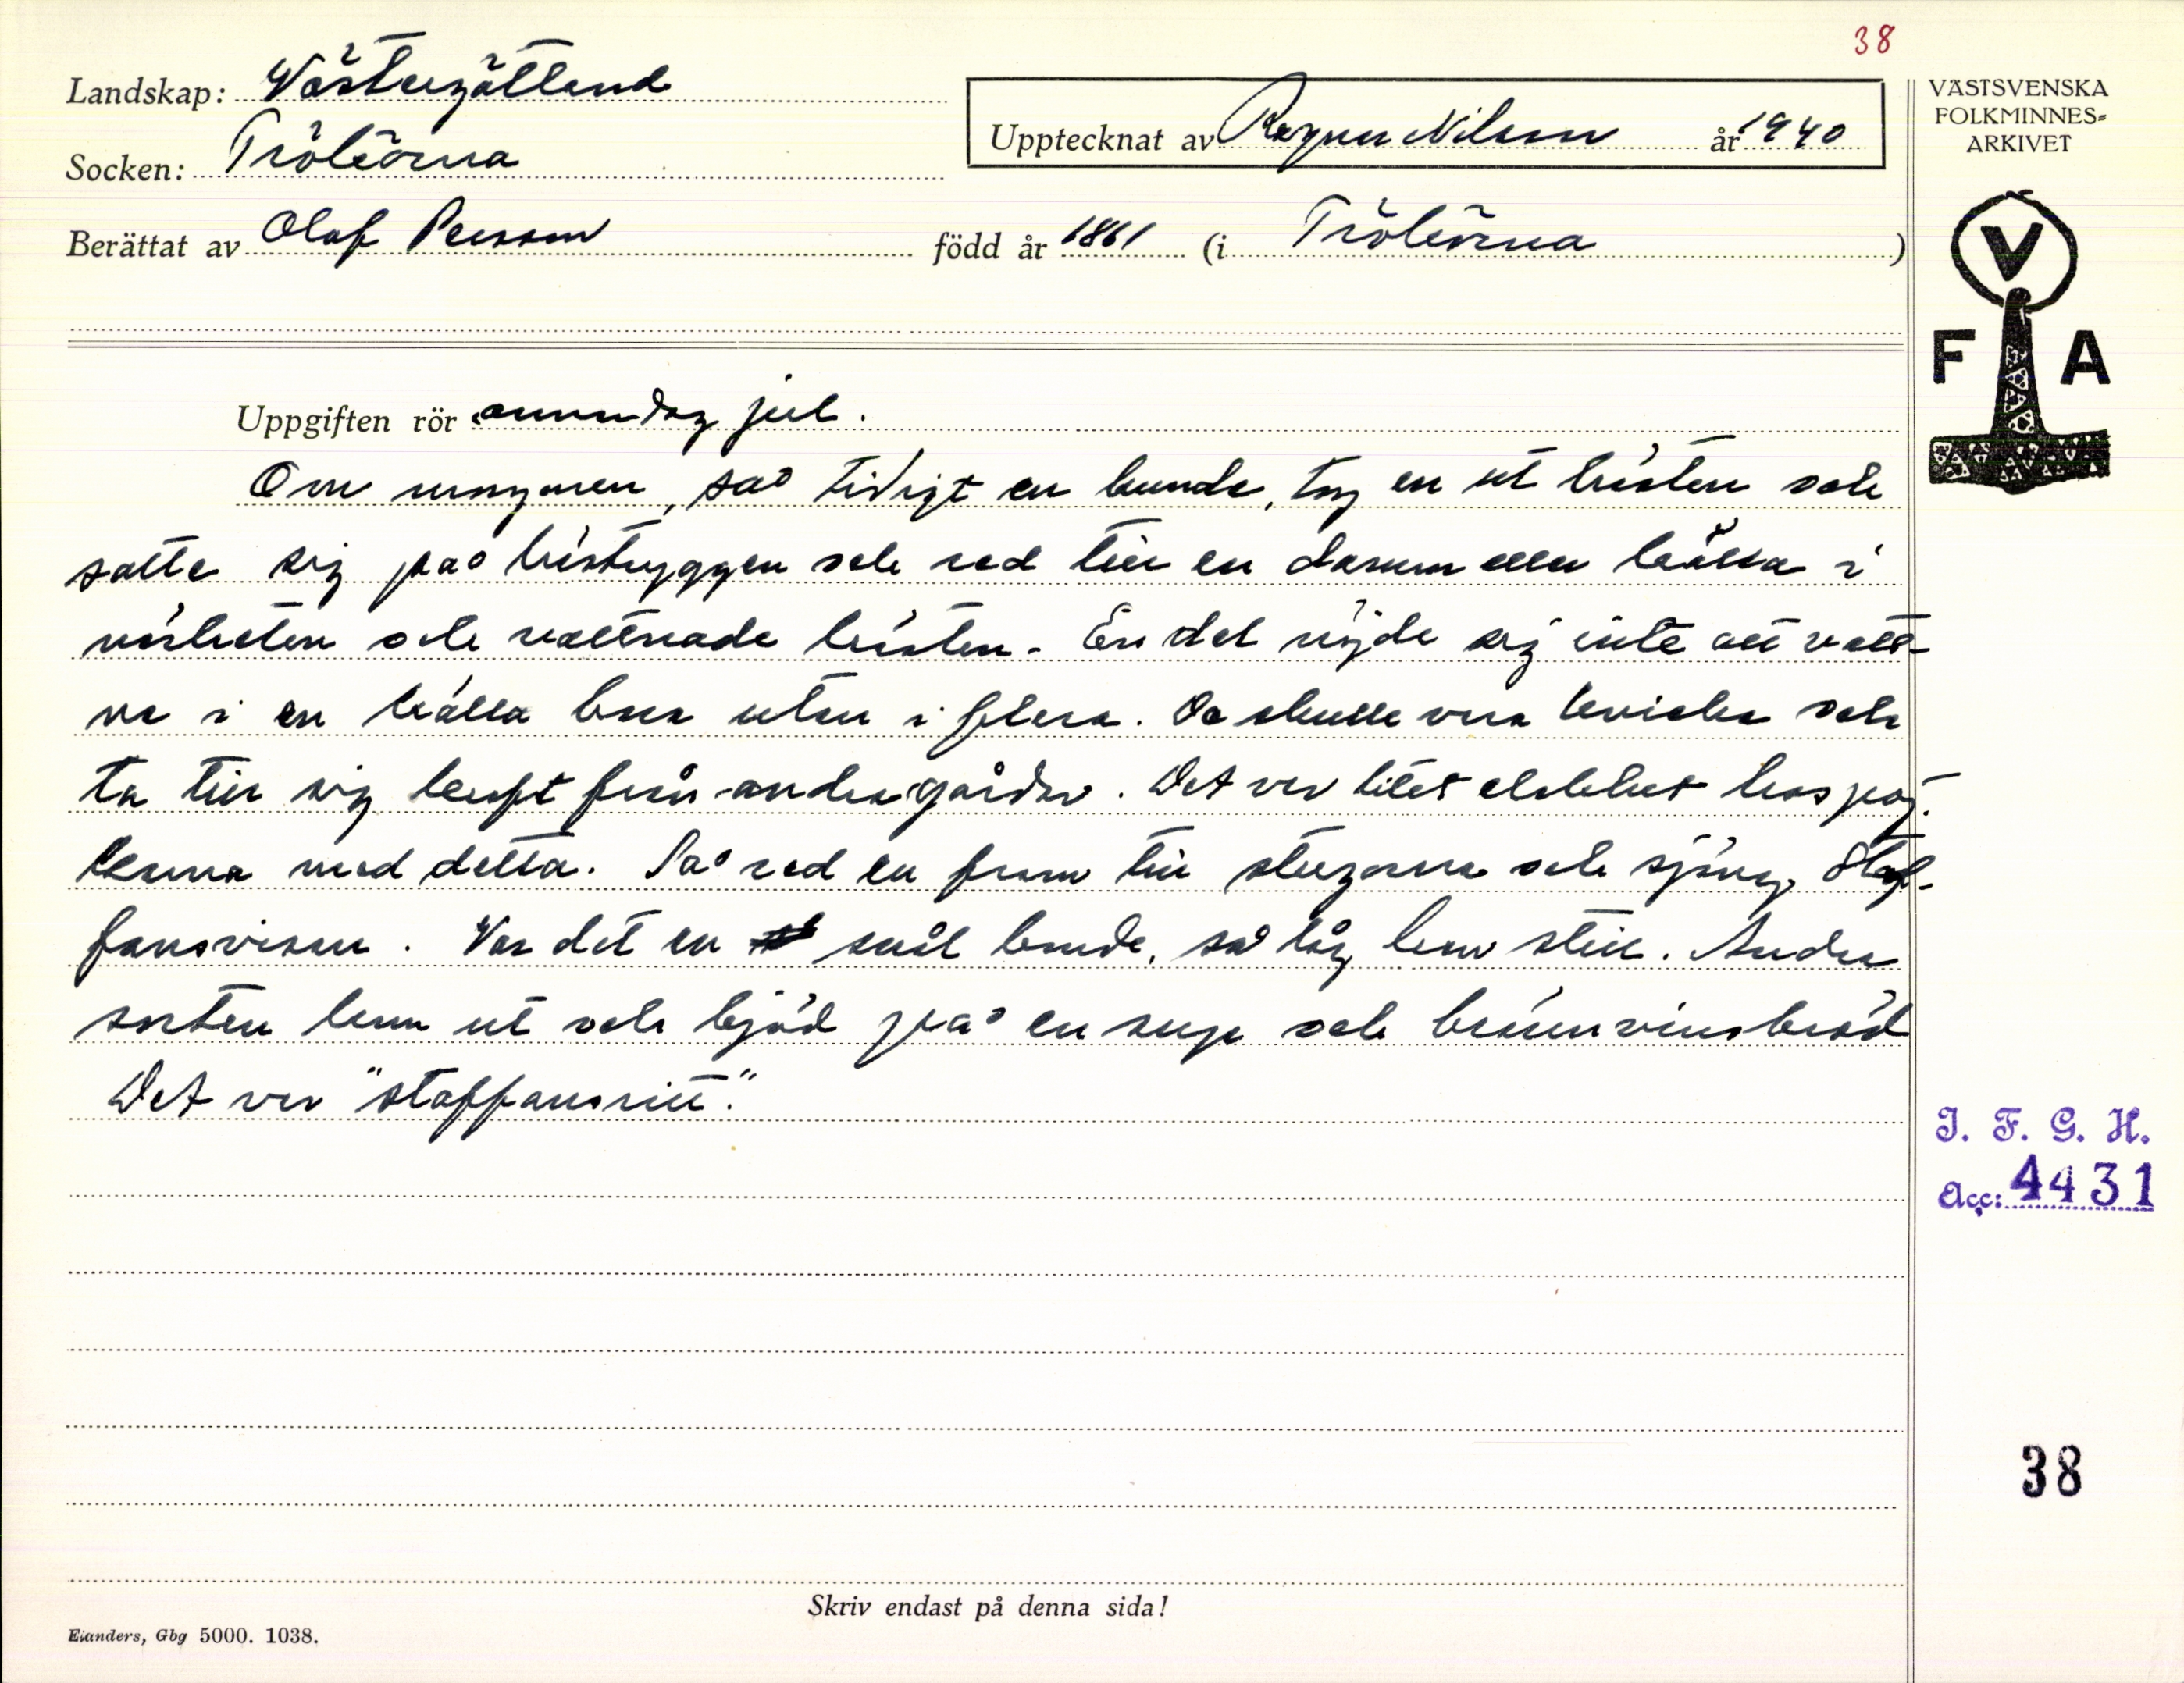 38
Landskap: Västergötland
Socken: Trökörna
Upptecknat av Ragnar Nilsson år 1940
Berättat av Olof Persson född år 1861 (i Trökörna)
VÄSTSVENSKA
FOLKMINNES=
ARKIVET
V
F A
Uppgiften rör annandag jul.
Om morgonen, så tidigt en kunde, tog en ut hästen och
satte sig på hästryggen och red till en damm eller källa i
närheten och vattnade hästen. En del nöjde sig inte att vatt-
na i en källa bara utan i flera. De skulle vara kvicka och
ta till sig kraft från andra gårdar. Det var litet skrock hos poj-
karna med detta. Så red en fram till stugorna och sjöng Staf-
fansvisan. Var det en snål bonde, så låg han still. Andra
sorten kom ut och bjöd på en sup och brännvinsbröd
Det var "staffansritt".
I. F. G. H.
Acc: 4431
38
Skriv endast på denna sida!
Elanders, Gbg 5000. 1038.